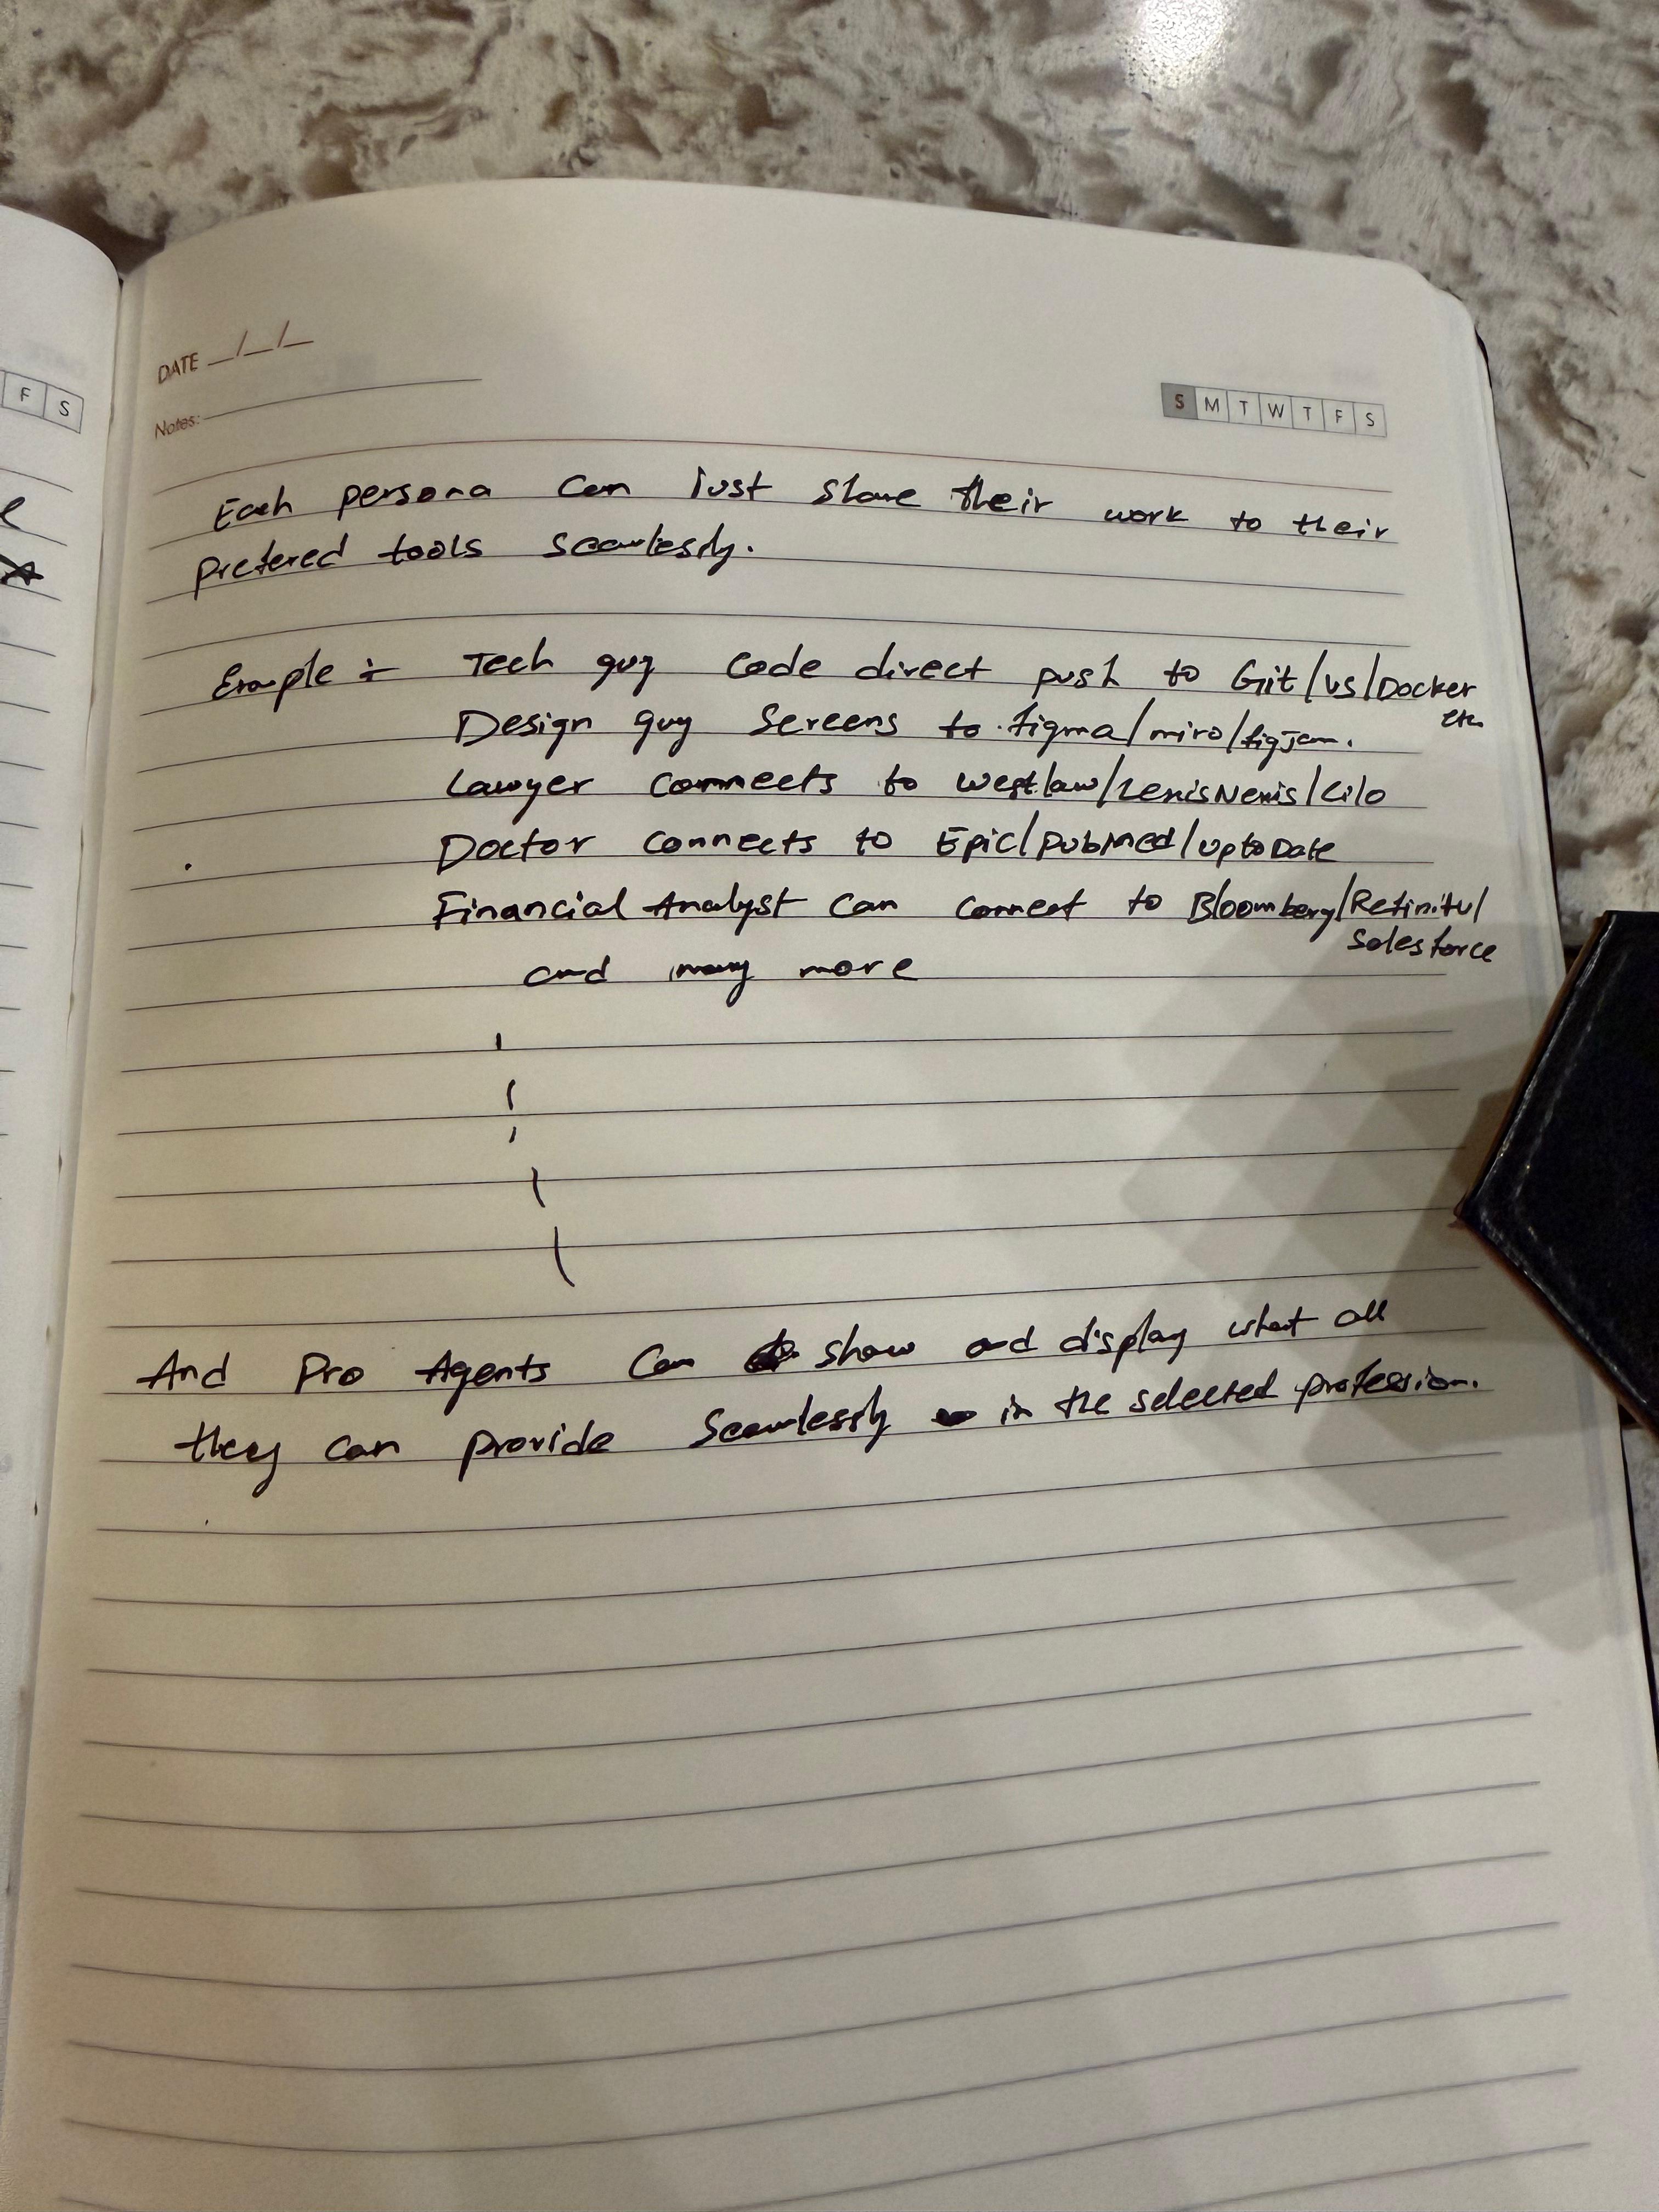 F S
DATE __/__/__
Notes:
S M T W T F S
Each persona can just share their work to their
prefered tools seamlessly.
Example :- Tech guy code direct push to Git/VS/Docker
etc
Design guy screens to figma/miro/figjam.
Lawyer connects to Westlaw/LexisNexis/Clio
Doctor connects to Epic/PubMed/UptoDate
Financial Analyst can connect to Bloomberg/Refinitv/
Salesforce
and many more
And Pro Agents can show and display what all
they can provide seamlessly in the selected profession.